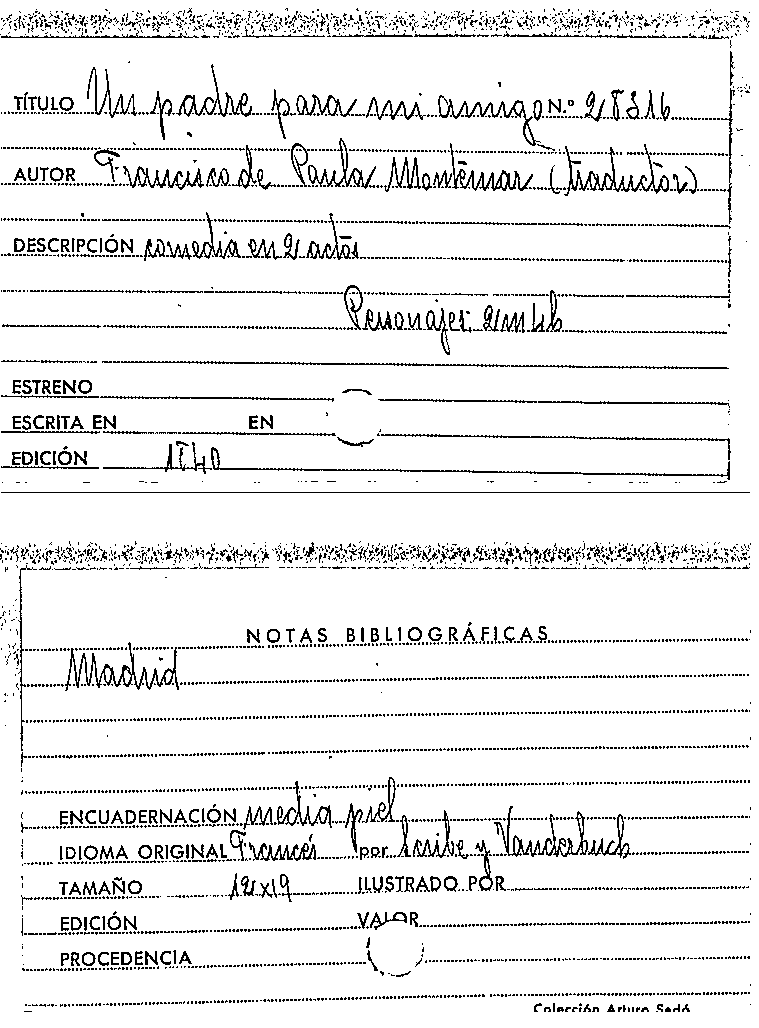 TÍTULO Un padre para mi amigo N.º 28316
AUTOR Francisco de Paula Montemar (traductor)
DESCRIPCIÓN comedia en 2 actos
Personajes: 2m 4h
ESTRENO
ESCRITA EN EN
EDICIÓN 1840
NOTAS BIBLIOGRÁFICAS
Madrid
ENCUADERNACIÓN media piel
IDIOMA ORIGINAL Francés por Scribe y Vanderbuch
TAMAÑO 12x19 ILUSTRADO POR
EDICIÓN VALOR
PROCEDENCIA
Colección Arturo Sedó